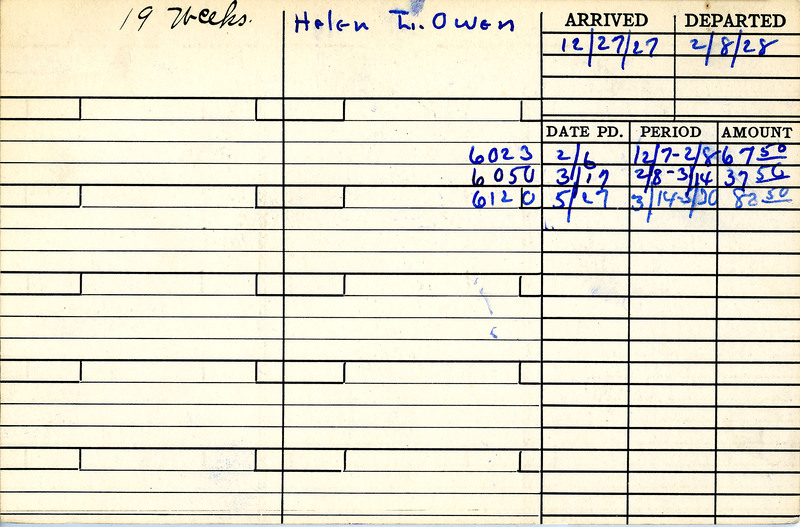 19 Weeks. Helen L. Owen ARRIVED DEPARTED
12/27/27 2/8/28
DATE PD. PERIOD AMOUNT
6023 2/6 12/7-2/8 67 50
6050 3/17 2/8-3/14 37 50
6120 5/27 3/14-5/30 82 50